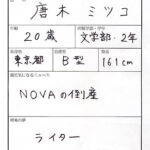 唐木 ミツコ
年齢
20歳
所属学部・学年
文学部・2年
出身地
東京都
血液型
B型
身長
161cm
最近気になるニュース
NOVAの倒産
将来の夢
ライター